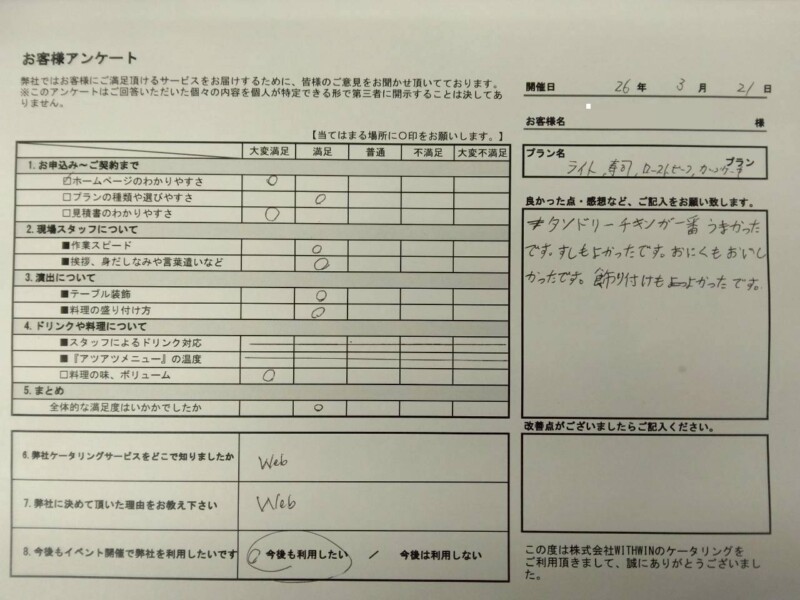 お客様アンケート
弊社ではお客様にご満足頂けるサービスをお届けするために、皆様のご意見をお聞かせ頂いております。
※このアンケートはご回答いただいた個々の内容を個人が特定できる形で第三者に開示することは決してあ
りません。
開催日 26 年 3 月 21 日
お客様名 様
【当てはまる場所に○印をお願いします。】
プラン名 プラン
ライト,寿司,ローストビーフ,
大変満足 満足 普通 不満足 大変不満足
1.お申込み～ご契約まで
☑ホームページのわかりやすさ ○
□プランの種類や選びやすさ ○
□見積書のわかりやすさ ○
2.現場スタッフについて
■作業スピード ○
■挨拶、身だしなみや言葉遣いなど ○
3.演出について
■テーブル装飾 ○
■料理の盛り付け方 ○
4.ドリンクや料理について
■スタッフによるドリンク対応
■『アツアツメニュー』の温度
□料理の味、ボリューム ○
5.まとめ
全体的な満足度はいかがでしたか ○
良かった点・感想など、ご記入をお願い致します。
タンドリーチキンが一番うまかった
です。すしもよかったです。おにくもおいし
かったです。飾り付けもよかったです。
改善点がございましたらご記入ください。
6.弊社ケータリングサービスをどこで知りましたか Web
7.弊社に決めて頂いた理由をお教え下さい Web
8.今後もイベント開催で弊社を利用したいです 今後も利用したい / 今後は利用しない
この度は株式会社WITHWINのケータリングを
ご利用頂きまして、誠にありがとうございまし
た。